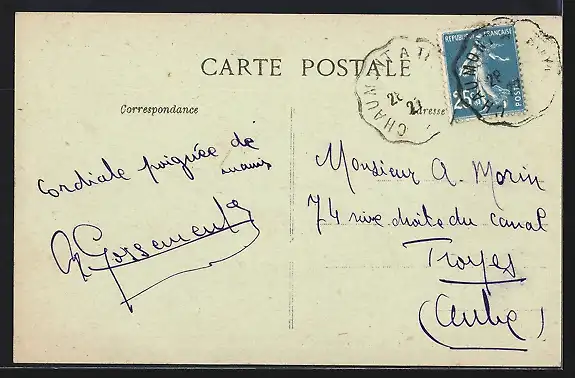 CARTE POSTALE
Correspondance
Adresse
RÉPUBLIQUE FRANÇAISE
25
POSTES
CHAUMONT
28
CHAUMONT
28
Cordiale poignée de
mains
Monsieur A. Morin
74 rue droite du canal
Troyes
(Aube)